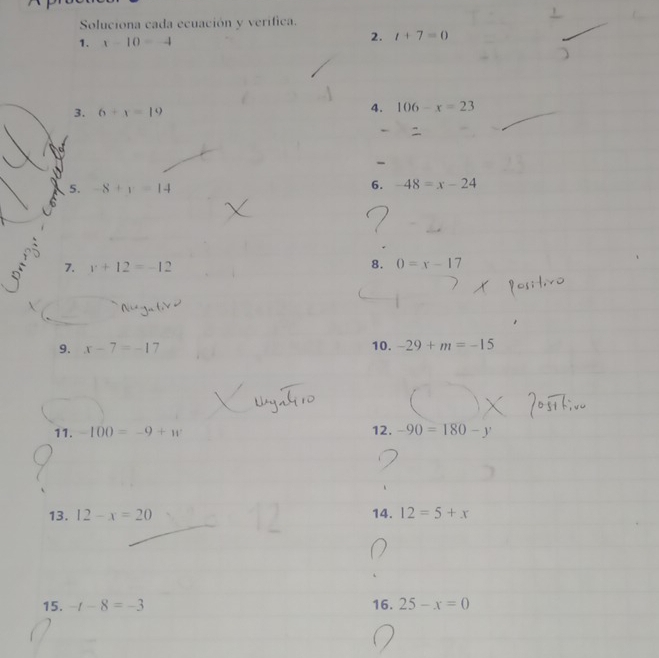 Soluciona cada ecuación y verifica.
1. x - 10 = -4
2. t + 7 = 0
3. 6 + x = 19
4. 106 - x = 23
5. -8 + y = 14
6. -48 = x - 24
?
7. y + 12 = -12
8. 0 = x - 17
x positivo
x Negativo
9. x - 7 = -17
10. -29 + m = -15
X Negativo
X Positivo
11. -100 = -9 + w
12. -90 = 180 - y
?
?
13. 12 - x = 20
14. 12 = 5 + x
?
15. -t - 8 = -3
16. 25 - x = 0
?
?